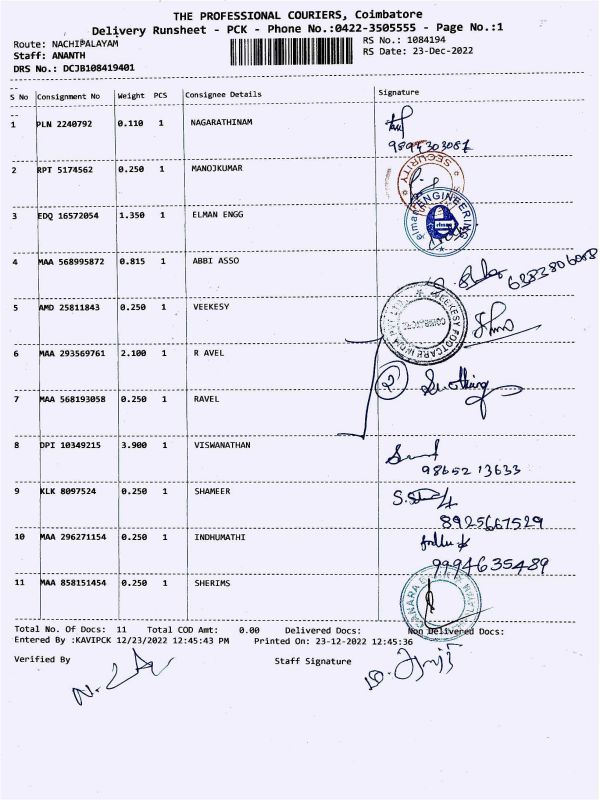 THE PROFESSIONAL COURIERS, Coimbatore
Delivery Runsheet - PCK - Phone No.:0422-3505555 - Page No.:1
Route: NACHIPALAYAM
RS No.: 1084194
Staff: ANANTH
RS Date: 23-Dec-2022
DRS No.: DCJB108419401
S No Consignment No Weight PCS Consignee Details Signature
1 PLN 2240792 0.110 1 NAGARATHINAM
2 RPT 5174562 0.250 1 MANOJKUMAR
SECURITY
3 EDQ 16572054 1.350 1 ELMAN ENGG
elman ENGINEERING
elman
4 MAA 568995872 0.815 1 ABBI ASSO
6383806088
5 AMD 25811843 0.250 1 VEEKESY
VEEKESY FOOTCARE INDIA PVT LTD
6 MAA 293569761 2.100 1 R AVEL
2
7 MAA 568193058 0.250 1 RAVEL
8 DPI 10349215 3.900 1 VISWANATHAN
98652 13633
9 KLK 8097524 0.250 1 SHAMEER
8925667529
10 MAA 296271154 0.250 1 INDHUMATHI
9994635489
11 MAA 858151454 0.250 1 SHERIMS
CANARA
Total No. Of Docs: 11 Total COD Amt: 0.00 Delivered Docs: Non Delivered Docs:
Entered By :KAVIPCK 12/23/2022 12:45:43 PM Printed On: 23-12-2022 12:45:36
Verified By Staff Signature